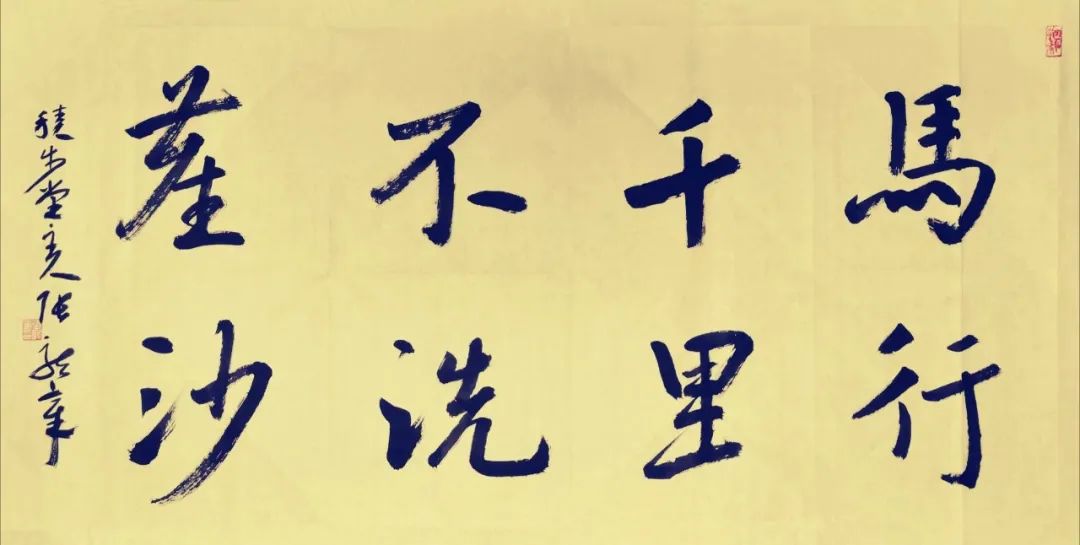 馬行
千里
不洗
塵沙
積步堂主人張章